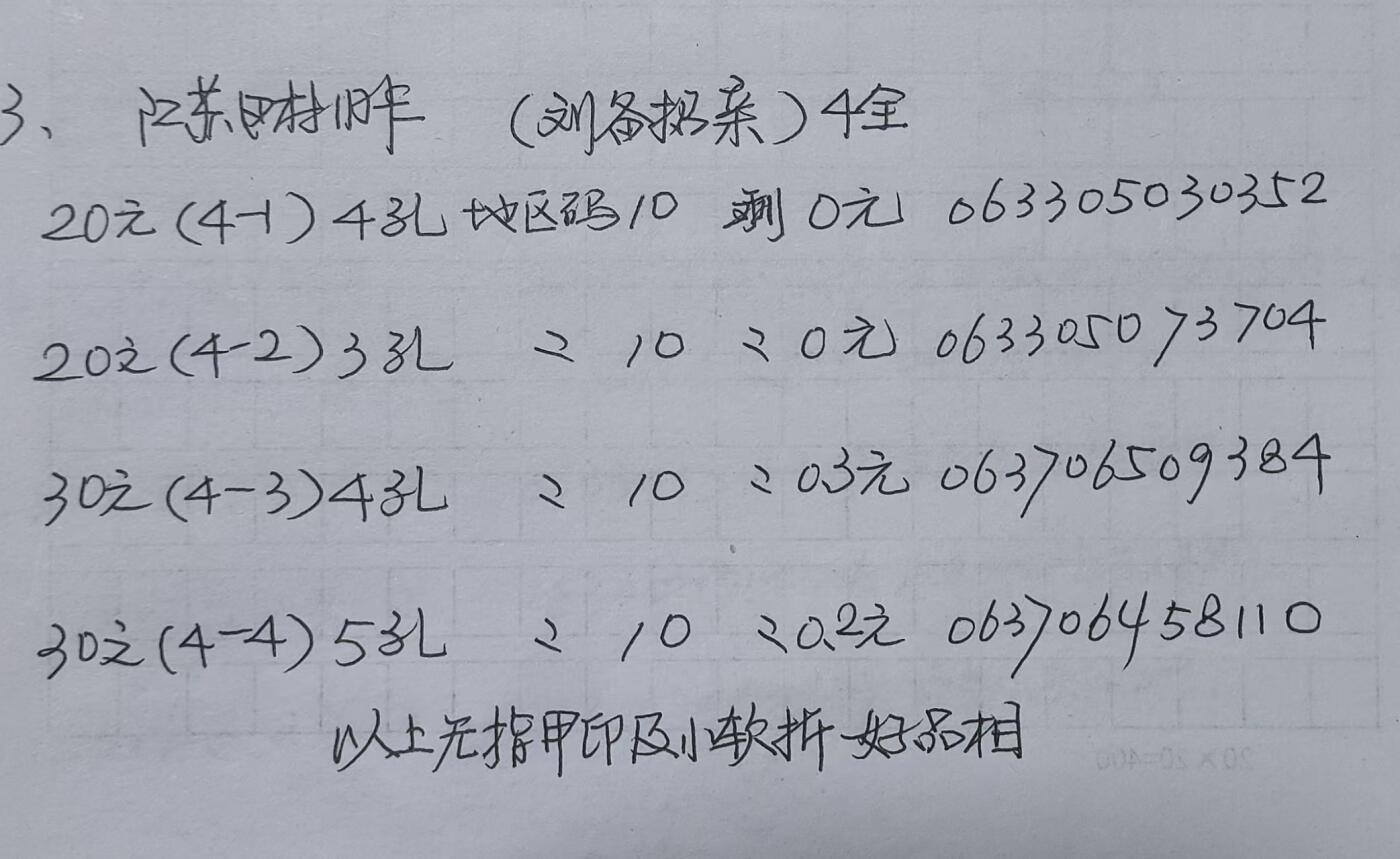 3、 江苏田村旧卡 (刘备招亲)4全
20元(4-1)4孔 地区码10 剩0元 063305030352
20元(4-2)33孔 〃 10 〃0元 063305073704
30元(4-3)4孔 〃 10 〃03元 063706509384
30元(4-4)5孔 〃 10 〃0.2元 063706458110
以上无指甲印及小软折 好品相
20×20=400